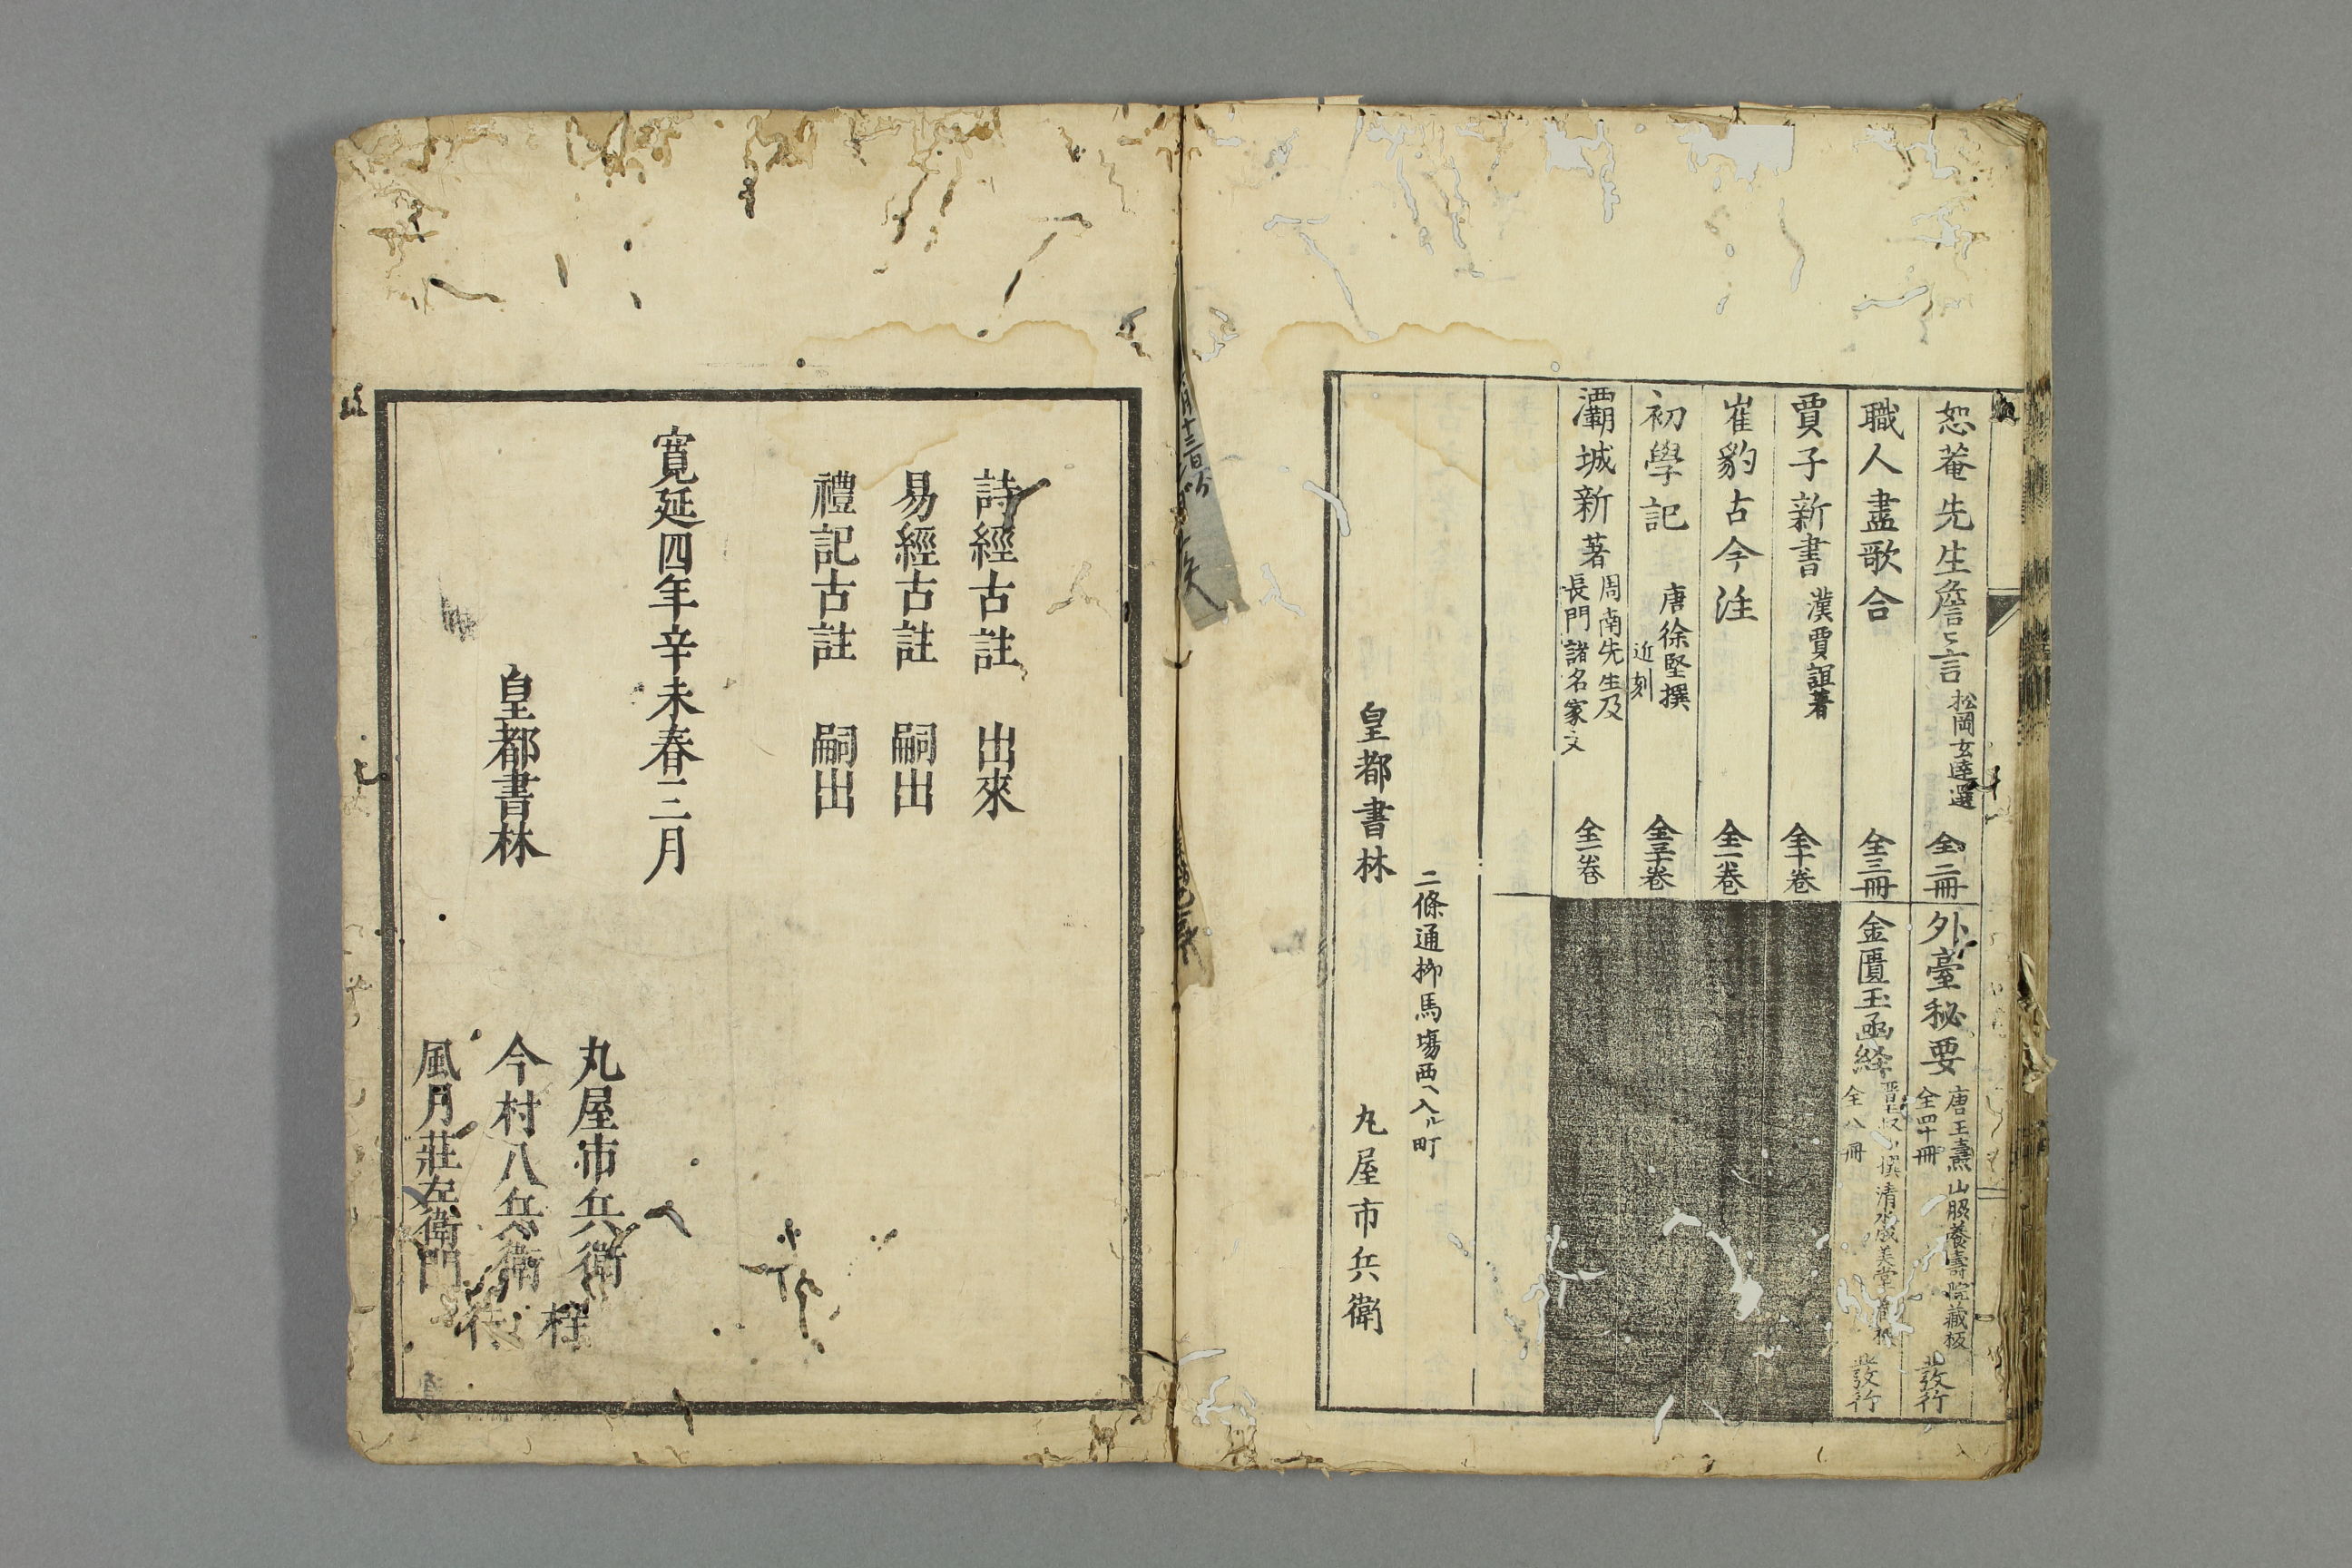 恕菴先生詹々言 松岡玄達選 全二冊
職人盡歌合 全三冊
賈子新書 漢賈誼著 全十卷
崔豹古今注 全一卷
初學記 唐徐堅撰 近刻 全三十卷
灞城新著 周南先生及長門諸名家文 全一卷
外臺秘要 唐王燾 山脇養壽院藏板 全四十冊 發行
金匱玉函経 撰清水成美堂 全八冊 發行
二條通柳馬場西へ入ル町
皇都書林 丸屋市兵衛
月十三日
詩經古註 出來
易經古註 嗣出
禮記古註 嗣出
寛延四年辛未春三月
丸屋市兵衛
皇都書林 今村八兵衛
風月莊左衛門